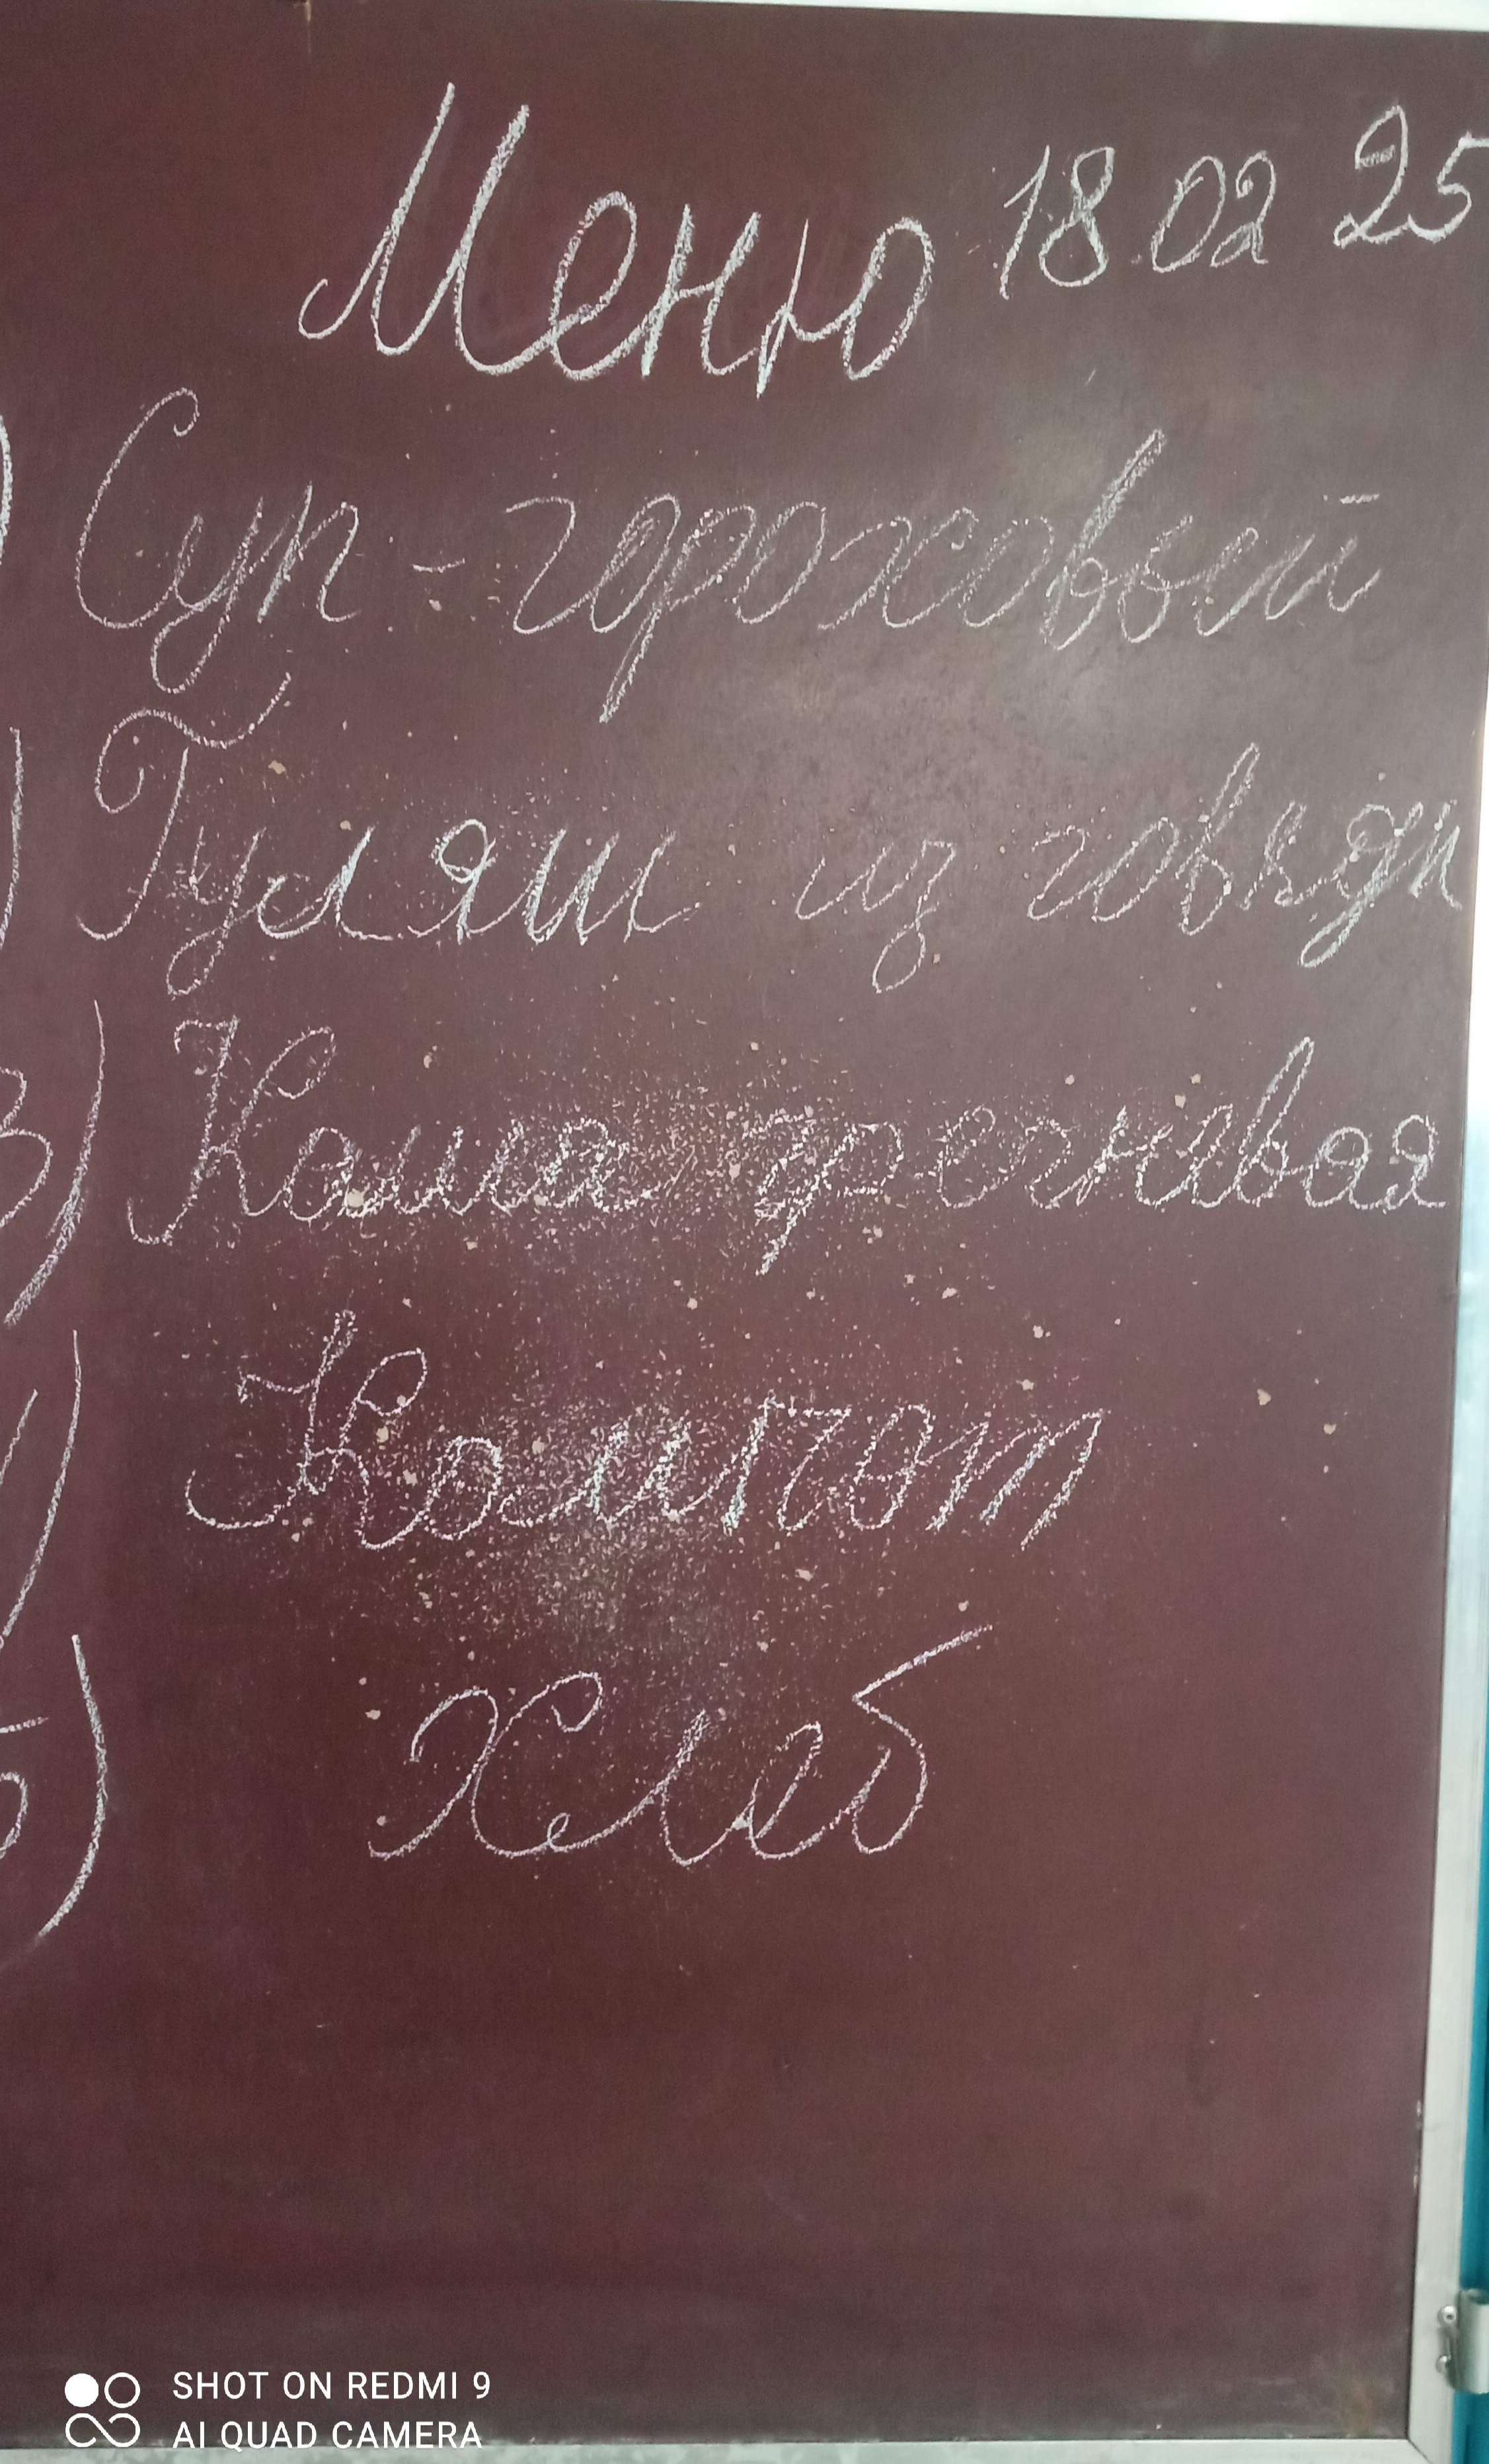 Меню 18 02 25
) Суп - гороховый
) Гуляш из говядин
3) Каша гречневая
4) Компот
5) Хлеб
SHOT ON REDMI 9
AI QUAD CAMERA